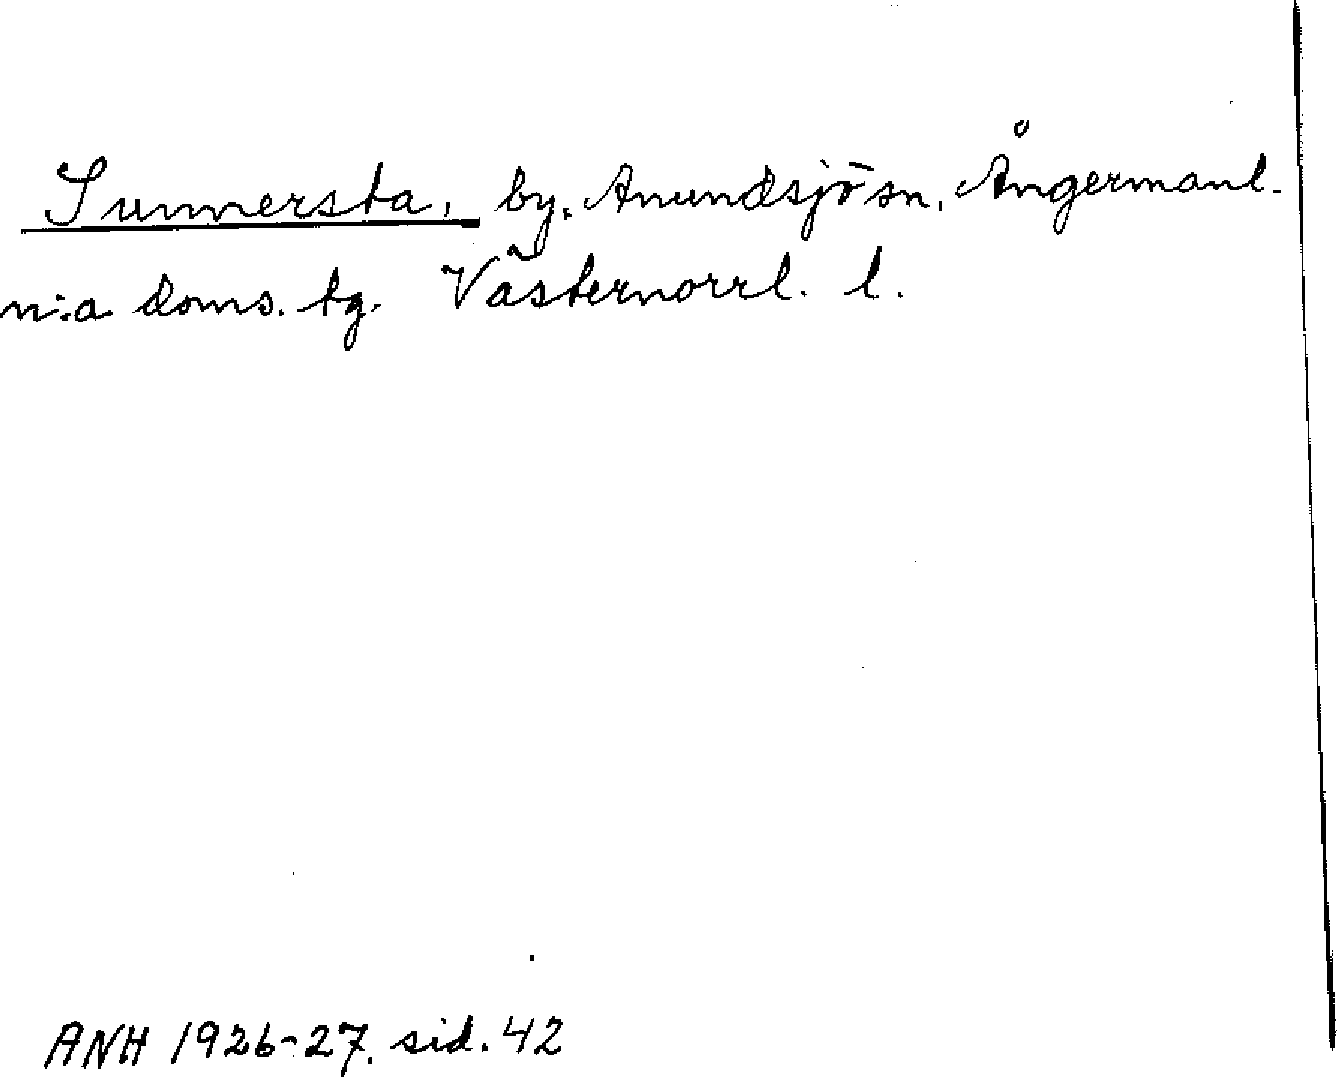 Sunnersta, by, Anundsjö sn, Ångermanl.
n:a doms. tg. Västernorrl. l.
ANH 1926-27, sid. 42